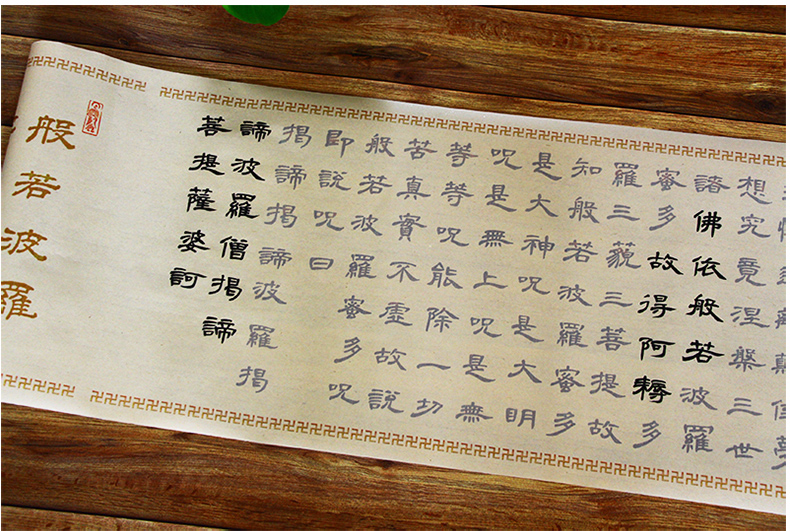 離顛倒夢
想究竟涅槃三世
諸佛依般若波羅
蜜多故得阿耨多
羅三藐三菩提故
知般若波羅蜜多
是大神呪是大明
呪是無上呪是無
等等呪能除一切
苦真實不虛故說
般若波羅蜜多呪
即說呪曰
揭諦揭諦波羅揭
諦波羅僧揭諦
菩提薩婆訶
般若波羅